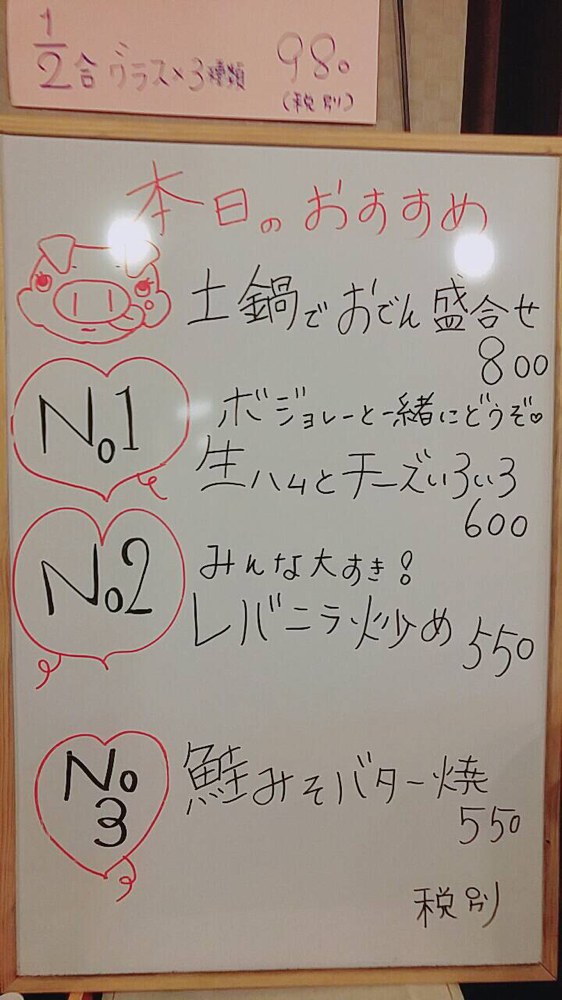 1/2合グラス×3種類 980
(税別)
本日のおすすめ
土鍋でおでん盛合せ
800
No1
ボジョレーと一緒にどうぞ♡
生ハムとチーズいろいろ
600
No2
みんな大すき!
レバニラ炒め 550
No3
鮭みそバター焼
550
税別